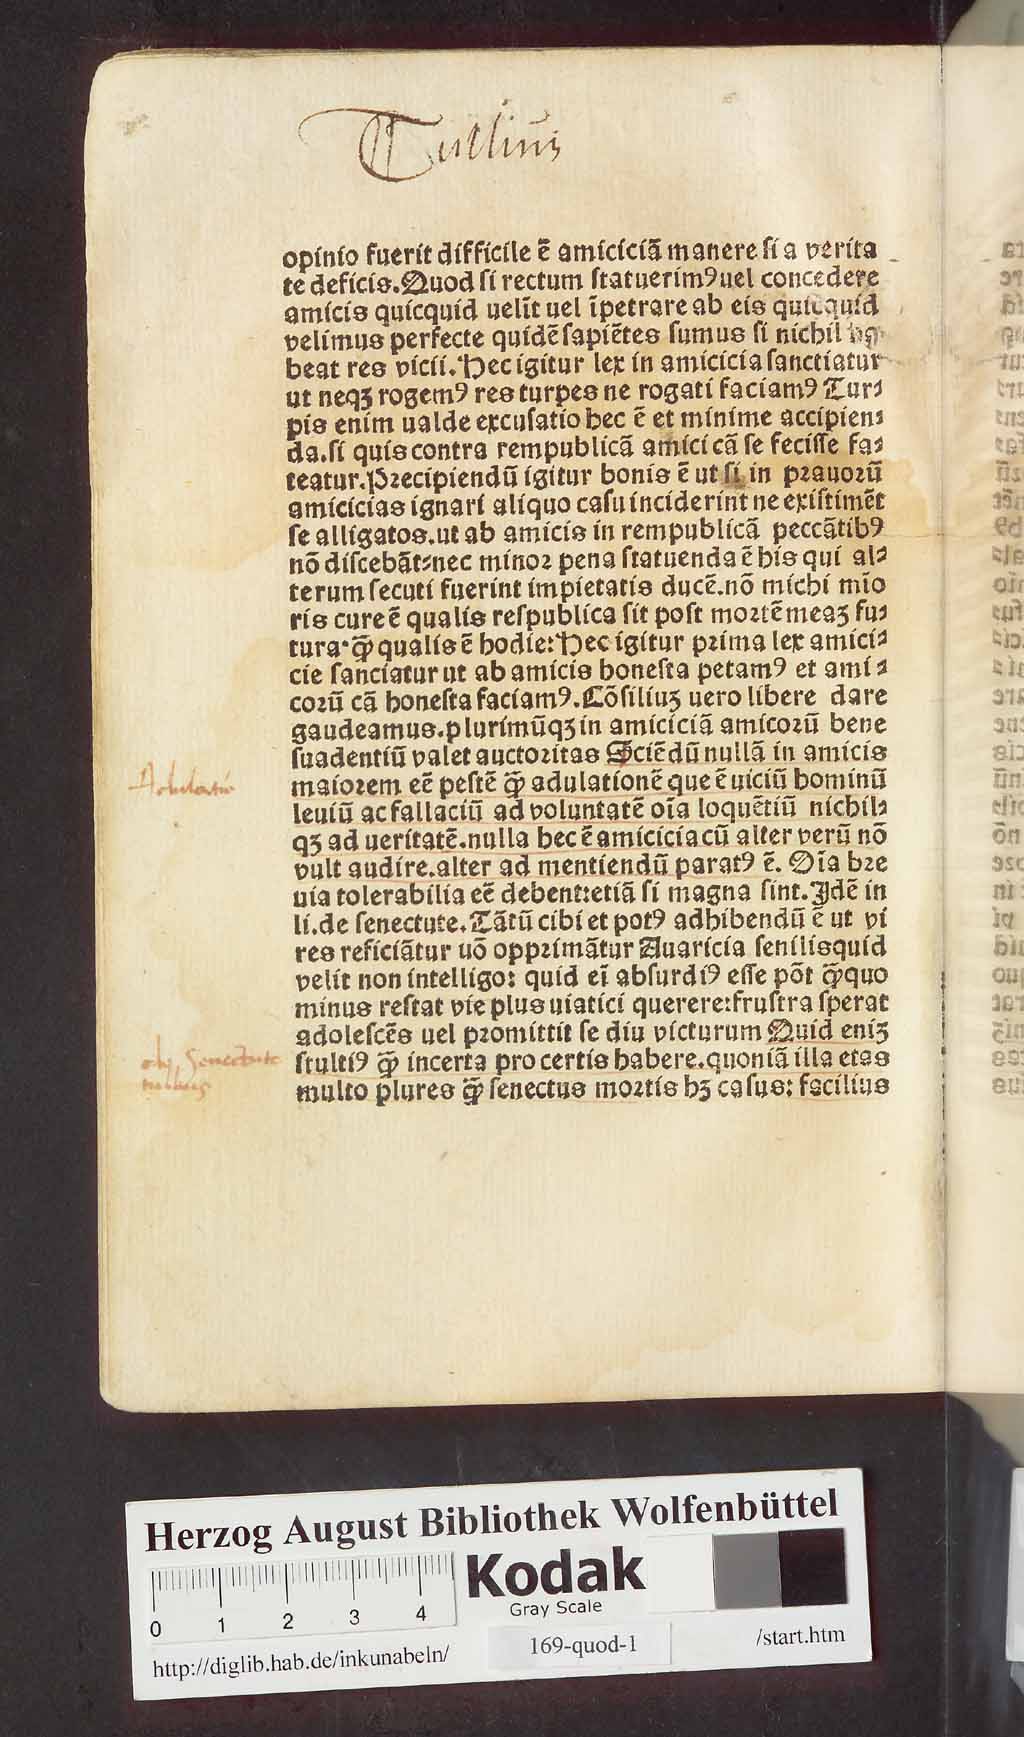 Tullius
opinio fuerit difficile ē amiciciā manere si a verita
te deficis. Quod si rectum statuerimꝰ uel concedere
amicis quicquid uelīt uel īpetrare ab eis quicquid
velimus perfecte quidē sapiētes sumus si nichil
beat res vicii. Hec igitur lex in amicicia sanctiatur
ut neqꝫ rogemꝰ res turpes ne rogati faciamꝰ Tur⸗
pis enim ualde excusatio hec ē et minime accipien⸗
da. si quis contra rempublicā amici cā se fecisse fa⸗
teatur. Precipiendū igitur bonis ē ut si in prauorū
amicicias ignari aliquo casu inciderint ne existimēt
se alligatos. ut ab amicis in rempublicā peccātibꝰ
nō discebāt: nec minor pena statuenda ē his qui al⸗
terum secuti fuerint impietatis ducē. nō michi mīo
ris cure ē qualis respublica sit post mortē meaꝫ fu⸗
tura· ꝙ̄ qualis ē hodie: Hec igitur prima lex amici⸗
cie sanciatur ut ab amicis honesta petamꝰ et ami⸗
corū cā honesta faciamꝰ. Cōsiliuꝫ uero libere dare
gaudeamus. plurimūqꝫ in amiciciā amicorū bene
suadentiū valet auctoritas Sciēdū nullā in amicis
maiorem eē pestē ꝙ̄ adulationē que ē uiciū hominū
leuiū ac fallaciū ad voluntatē oīa loquētiū nichil⸗
qꝫ ad ueritatē. nulla hec ē amicicia cū alter verū nō
vult audire. alter ad mentiendū paratꝰ ē. Oīa bre
uia tolerabilia eē debent: etiā si magna sint. Idē in
li. de senectute. Tātū cibi et potꝰ adhibendū ē ut vi
res reficiātur uō opprimātur Auaricia senilis quid
velit non intelligo: quid eī absurdiꝰ esse pōt ꝙ̄ quo
minus restat vie plus uiatici querere: frustra sperat
adolescēs uel promittit se diu victurum Quid eniꝫ
stultiꝰ ꝙ̄ incerta pro certis habere. quoniā illa etas
multo plures ꝙ̄ senectus mortis hꝫ casus: facilius
Adulatio
Senectute
Herzog August Bibliothek Wolfenbüttel
Kodak
Gray Scale
0 1 2 3 4
http://diglib.hab.de/inkunabeln/
169-quod-1
/start.htm